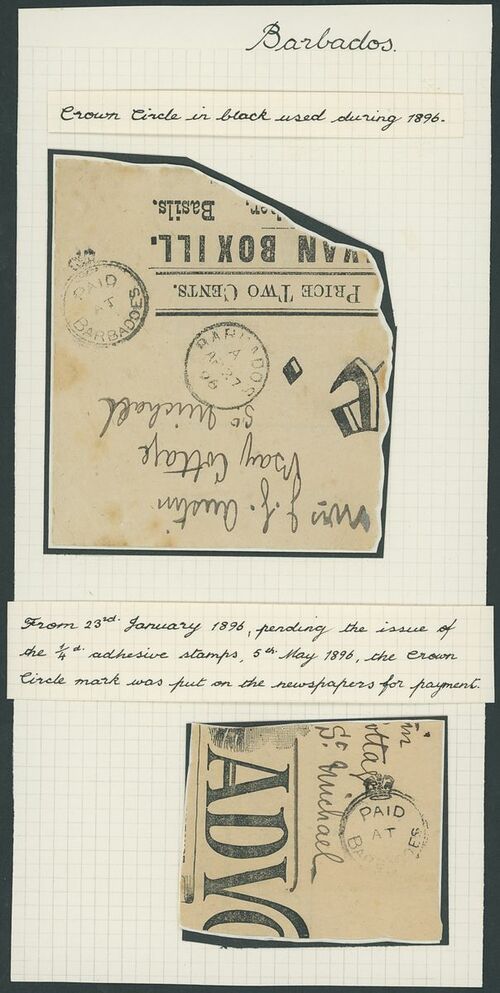 Barbados.
Crown Circle in black used during 1896.
Basils.
IVAN BOXILL.
PRICE TWO CENTS.
PAID
AT
BARBADOES
BARBADOS
A
Mrs J. J. Austin
Bay Cottage
St Michael
From 23rd. January 1896, pending the issue of
the ¼d. adhesive stamps, 5th. May 1896, the Crown
Circle mark was put on the newspapers for payment.
ADVO
in
ottage
St Michael
PAID
AT
BARBADOES